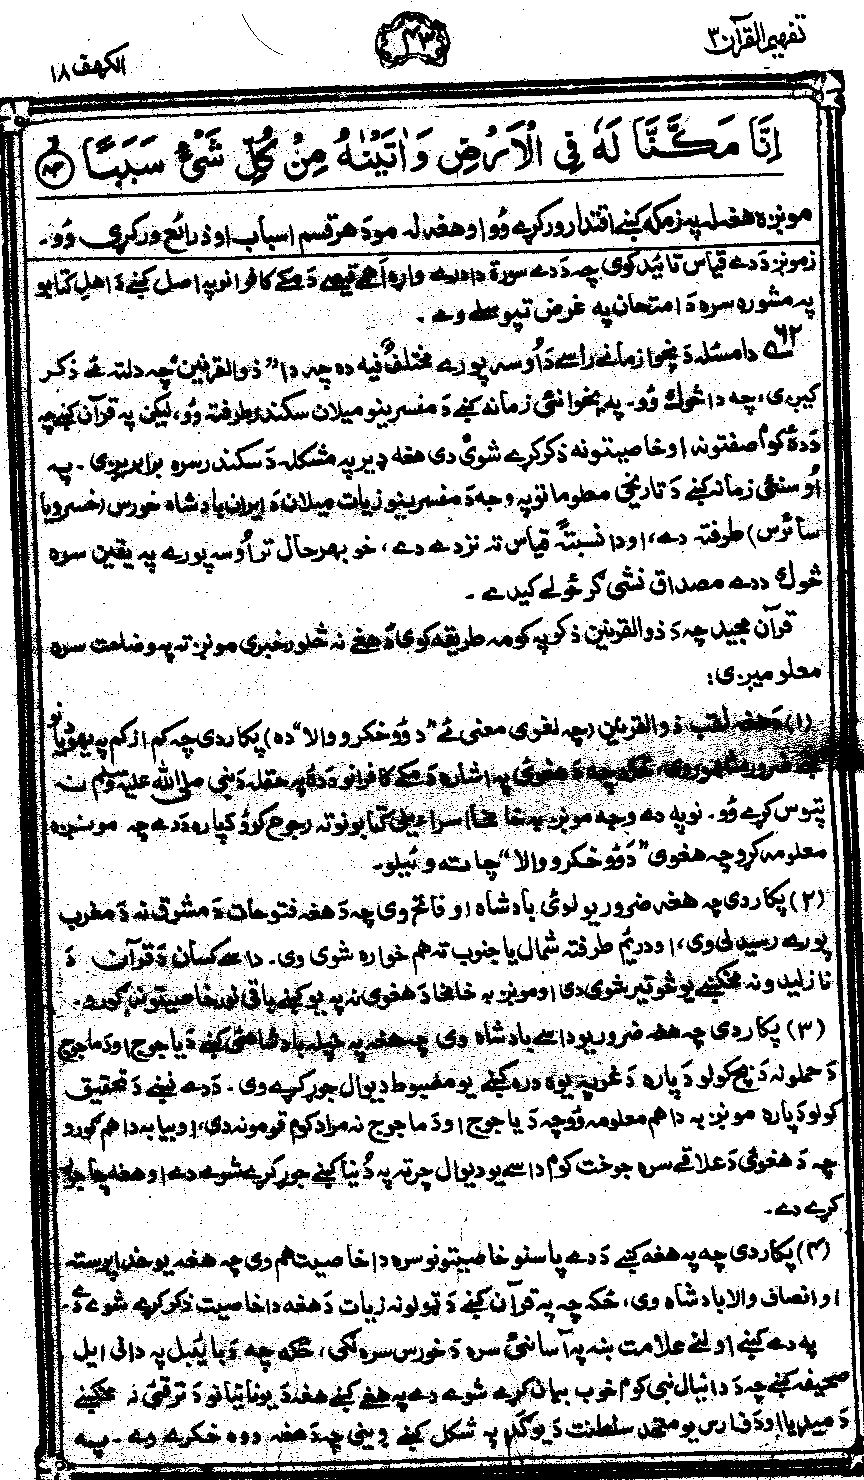 تفهیم القرآن ۳
۴۳
الکهف ۱۸
اِنَّا مَكَّنَّا لَهٗ فِی الْاَرْضِ وَاٰتَیْنٰهُ مِنْ كُلِّ شَیْءٍ سَبَبًا ﴿۸۴﴾
مونږه هغه له په زمکه کښے اقتدار ورکړے وُو او هغه له مو د هر قسم اسباب او ذرائع ورکړی وُو۔
زمونږ د دے قیاس تائید کوی چه د دے سورة دا درے واړه اَهمے قیصے د مکے کافرانو په اصل کښے د اهلِ کتابو
په مشوره سره د امتحان په غرض تپوسلے وے۔
۶۲ دا مسئله د پخوا زمانے راسے د اُوسه پورے مختلف فیه ده چه دا "ذوالقرنین" چه دلته ئے ذکر
کیږی، چه دا څوک وُو۔ په پخوانئی زمانه کښے د مفسرینو میلان سکندر طرفته وُو، لیکن په قرآن کښے چه
د دۀ کوم صفتونه او خاصیتونه ذکر کړے شوی دی هغه ډیر په مشکله د سکندر سره برابریږی۔ په
اُوسنئی زمانه کښے د تاریخی معلوماتو په وجه د مفسرینو زیات میلان د ایران بادشاه خورس (خسرو یا
سائرس) طرفته دے، او دا نسبتًا قیاس ته نزدے دے، خو بهرحال تر اُوسه پورے په یقین سره
څوک ددے مصداق نشی گرځولے کیدے۔
قرآن مجید چه د ذوالقرنین ذکر په کومه طریقه کوی د هغے نه څلور خبری مونږ ته په وضاحت سره
معلومیږی:
(۱) د هغه لقب ذوالقرنین (چه لغوی معنی ئے "د دُوو خکرو والا" ده) پکار دی چه کم از کم په یهودیانو
کښے ضرور مشهور وی، ځکه چه د هغوی په اشاره د مکے کافرانو د دۀ په حقله د نبی صلی الله علیه وسلم نه
تپوس کړے وُو۔ نو په دے وجه مونږ به خامخا اسراءیلی کتابونو ته رجوع کوؤ د پاره ددے چه مونږه
معلومه کړو چه هغوی "د دُوو خکرو والا" چا ته وئیلو۔
(۲) پکار دی چه هغه ضرور یو لوئی بادشاه او فاتح وی چه د هغه فتوحات د مشرق نه د مغرب
پورے رسیدلی وی، او دریم طرفته شمال یا جنوب ته هم خواره شوی وی۔ داسے کسان د قرآن د
نازلیدو نه مخکښے یو څو تیر شوی دی او مونږ به خامخا د هغوی نه په یو کښے باقی نور خاصیتونه گورو۔
(۳) پکار دی چه هغه ضرور یو داسے بادشاه وی چه هغه په خپله بادشاهئی کښے د یاجوج او د ماجوج
د حملو نه د بچ کولو د پاره د غر په یوه دره کښے یو مضبوط دیوال جوړ کړے وی۔ ددے خبرے د تحقیق
کولو د پاره مونږ به دا هم معلومه وُو چه د یاجوج او د ماجوج نه مراد کوم قومونه دی، او بیا به دا هم گورو
چه د هغوئی د علاقے سره جوخت کوم داسے یو دیوال چرته په دُنیا کښے جوړ کړے شوے دے او هغه چا جوړ
کړے دے۔
(۴) پکار دی چه په هغه کښے ددے پاسنو خاصیتونو سره دا خاصیت هم وی چه هغه یو خدا پرسته
او انصاف والا بادشاه وی، ځکه چه په قرآن کښے د ټولو نه زیات د هغه دا خاصیت ذکر کړے شوے دے۔
په دے کښے اولنے علامت ښه په آسانئی سره د خورس سره لگی، ځکه چه د بائیبل په دانی ایل
صحیفه کښے چه د دانیال نبی کوم خوب بیان کړے شوے دے په هغے کښے هغه د یونانیانو د ترقئی نه مخکښے
د میدیا او د فارس یو متحد سلطنت د یو گډ په شکل کښے وینی چه د هغه دوه خکرے وے۔ په